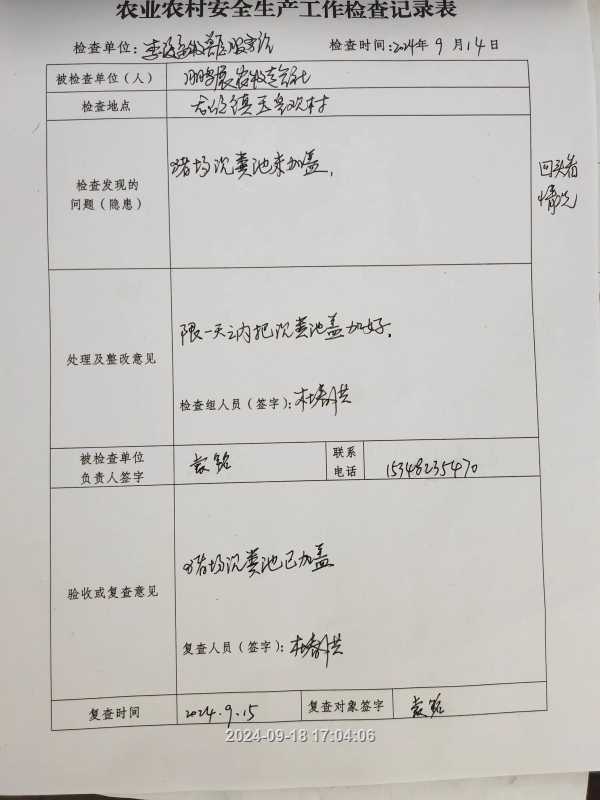 农业农村安全生产工作检查记录表
检查单位: 检查时间:2024年 9月14日
被检查单位(人)
检查地点 村
检查发现的
问题(隐患)
猪场沉粪池未加盖.
回头看
情况
处理及整改意见
限一天之内把沉粪池盖加好.
检查组人员(签字):
被检查单位
负责人签字
袁铭
联系
电话
15348235470
验收或复查意见
猪场沉粪池已加盖
复查人员(签字):
复查时间 2024.9.15 复查对象签字 袁铭
2024-09-18 17:04:06